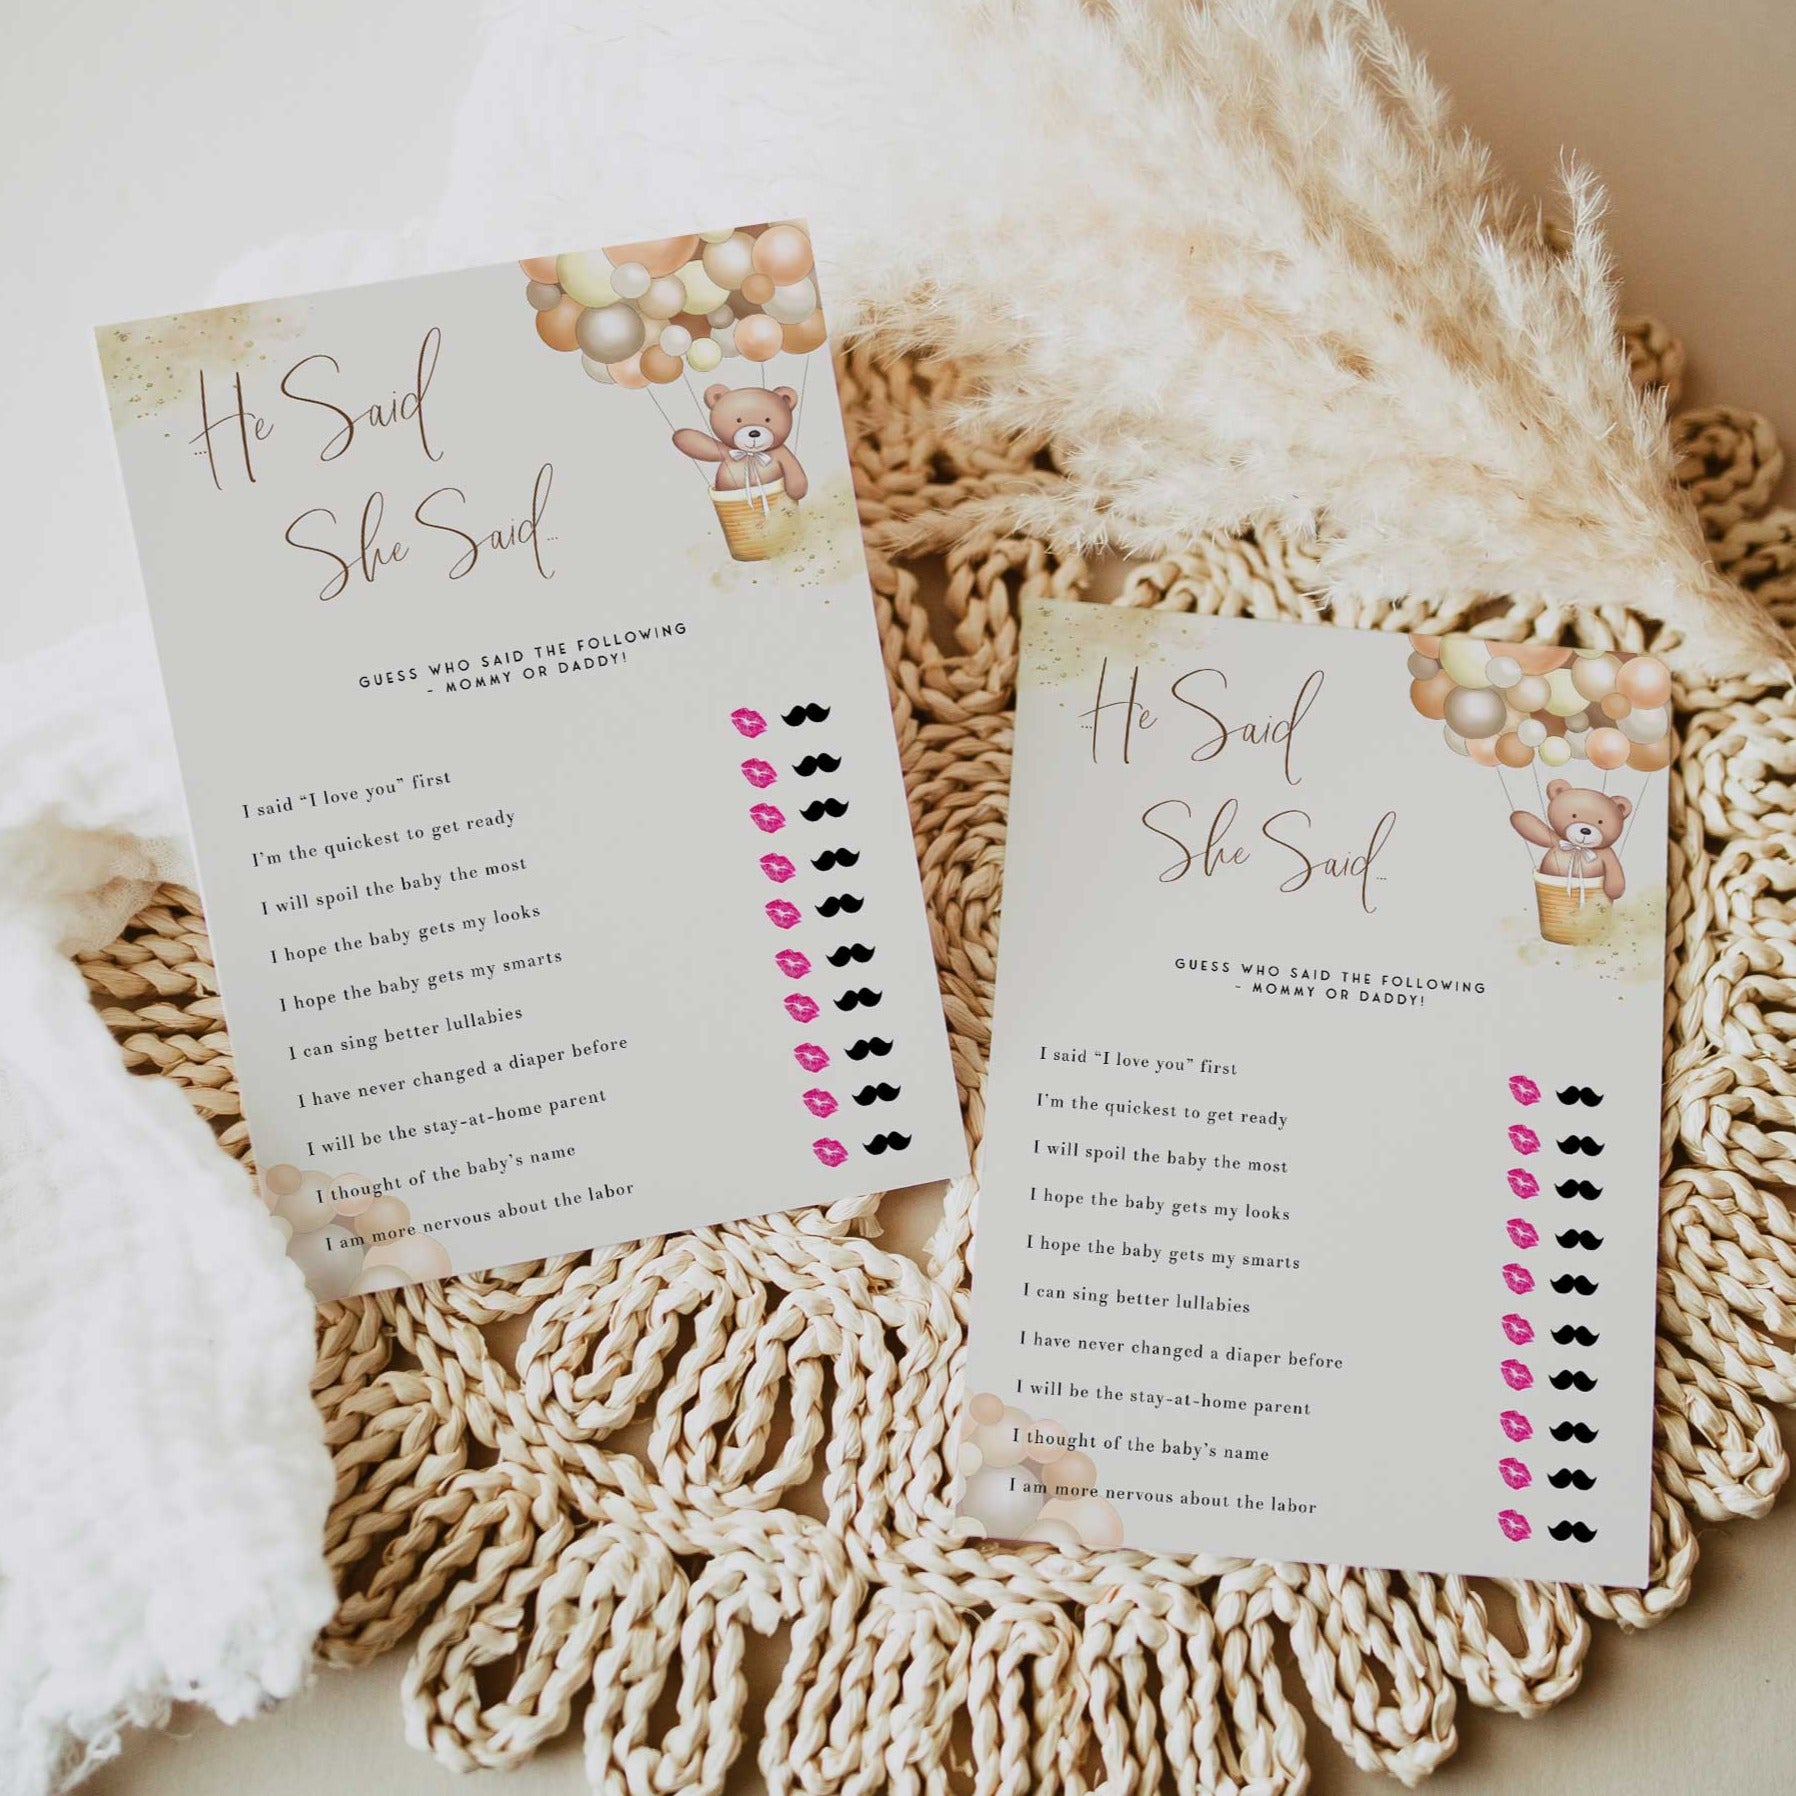 He Said
She Said...
GUESS WHO SAID THE FOLLOWING
- MOMMY OR DADDY!
I said “I love you” first
I’m the quickest to get ready
I will spoil the baby the most
I hope the baby gets my looks
I hope the baby gets my smarts
I can sing better lullabies
I have never changed a diaper before
I will be the stay-at-home parent
I thought of the baby’s name
I am more nervous about the labor
...He Said
She Said...
GUESS WHO SAID THE FOLLOWING
- MOMMY OR DADDY!
I said “I love you” first
I’m the quickest to get ready
I will spoil the baby the most
I hope the baby gets my looks
I hope the baby gets my smarts
I can sing better lullabies
I have never changed a diaper before
I will be the stay-at-home parent
I thought of the baby’s name
I am more nervous about the labor